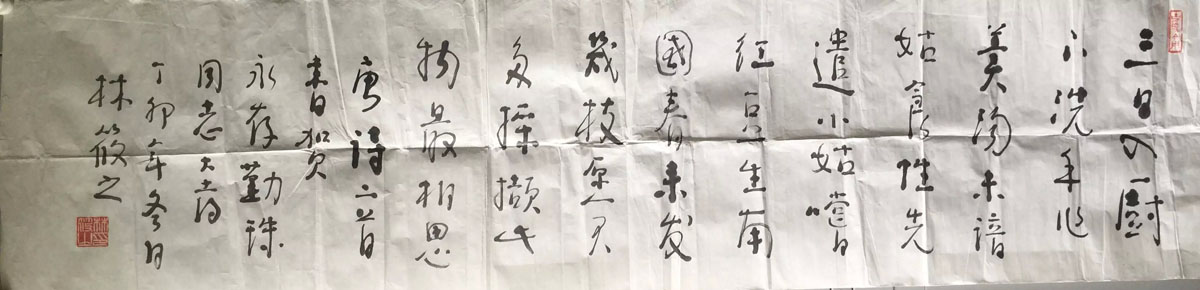 三日入廚
下洗手作
羹汤未諳
姑食性先
遣小姑嚐
红豆生南
國春来发
幾枝愿君
多採撷此
物最相思
唐詩二首
书贺
永存勤珠
同志大喜
丁卯年冬月
林筱之